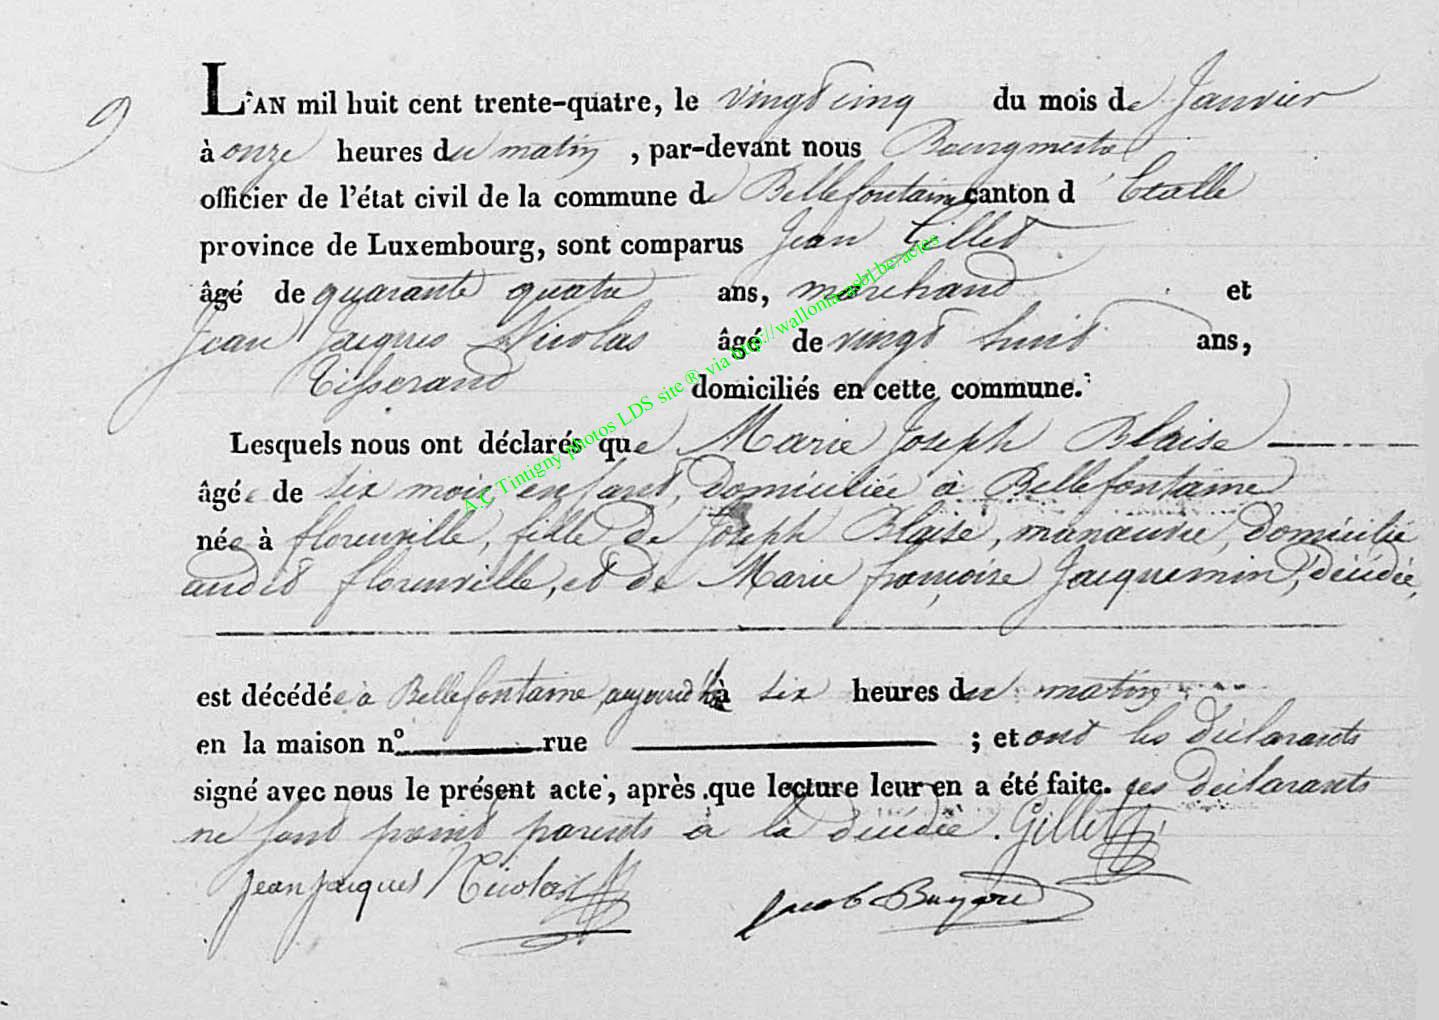 9
L'AN mil huit cent trente-quatre, le vingt cinq du mois de Janvier
à onze heures du matin, par-devant nous Bourgmestre
officier de l'état civil de la commune de Bellefontaine canton d'Etalle
province de Luxembourg, sont comparus Jean Gillet
âgé de quarante quatre ans, marchand et
Jean Jacques Nicolas âgé de vingt huit ans,
Tisserand domiciliés en cette commune.
Lesquels nous ont déclarés que Marie Joseph Blaise
âgée de six mois enfant, domiciliée à Bellefontaine
née à florenville, fille de Joseph Blaise, manœuvre, domicilié
audit florenville, et de Marie françoise Jacquemin, décédée,
est décédée à Bellefontaine aujourd'hui à six heures du matin
en la maison n° rue ; et ont les déclarants
signé avec nous le présent acte, après que lecture leur en a été faite. ces déclarants
ne sont point parents à la décédée. Gillet
jean jacques Nicolas Jacob
A.C Tintigny photos LDS site ® via http://wallonia-asbl.be/actes